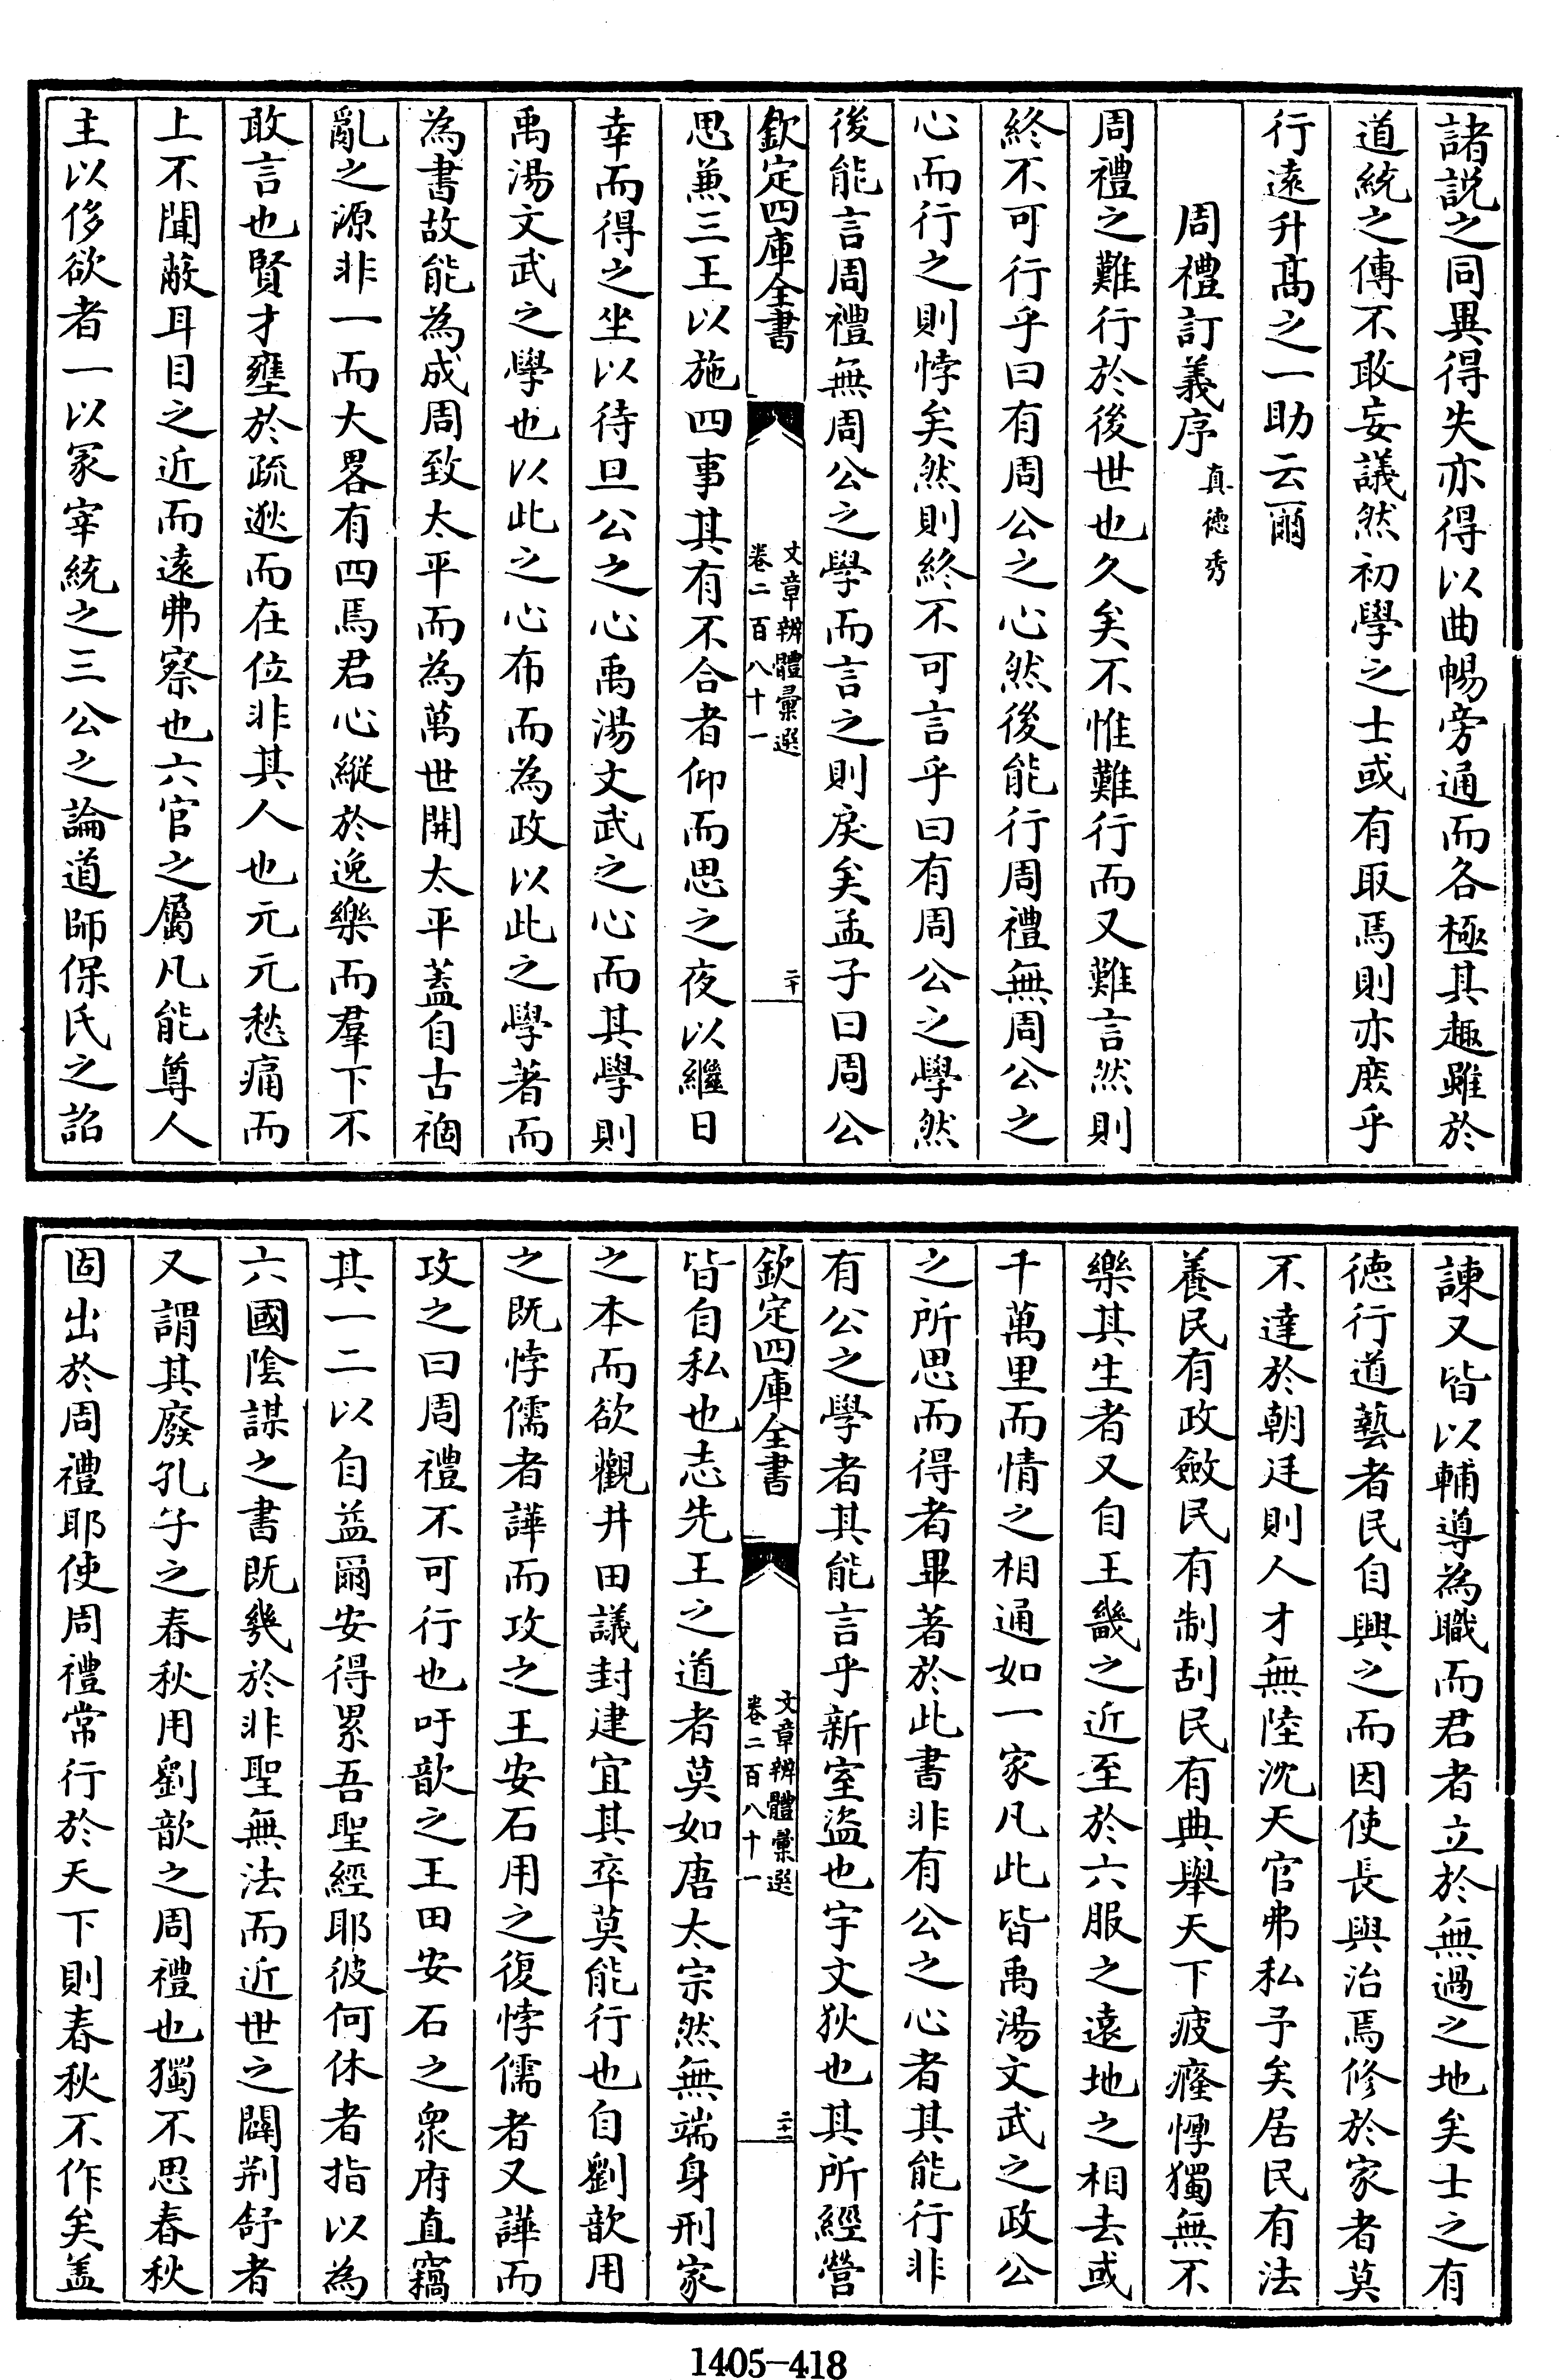 諸説之同異得失亦得以曲暢旁通而各極其趣雖於
道統之傳不敢妄議然初學之士或有取焉則亦庶乎
行遠升髙之一助云爾
周禮訂義序真徳秀
周禮之難行於後世也久矣不惟難行而又難言然則
終不可行乎曰有周公之心然後能行周禮無周公之
心而行之則悖矣然則終不可言乎曰有周公之學然
後能言周禮無周公之學而言之則戾矣孟子曰周公
欽定四庫全書
文章辨體彚選
卷二百八十一
二十
思兼三王以施四事其有不合者仰而思之夜以繼日
幸而得之坐以待旦公之心禹湯文武之心而其學則
禹湯文武之學也以此之心布而為政以此之學著而
為書故能為成周致太平而為萬世開太平蓋自古禍
亂之源非一而大畧有四焉君心縱於逸樂而羣下不
敢言也賢才壅於疏逖而在位非其人也元元愁痛而
上不聞蔽耳目之近而遠弗察也六官之屬凡能尊人
主以侈欲者一以冢宰統之三公之論道師保氏之詔
諫又皆以輔導為職而君者立於無過之地矣士之有
徳行道藝者民自興之而因使長與治焉修於家者莫
不達於朝廷則人才無陸沈天官弗私予矣居民有法
養民有政斂民有制刮民有典舉天下疲癃惸獨無不
樂其生者又自王畿之近至於六服之遠地之相去或
千萬里而情之相通如一家凡此皆禹湯文武之政公
之所思而得者畢著於此書非有公之心者其能行非
有公之學者其能言乎新室盜也宇文狄也其所經營
欽定四庫全書
文章辨體彚選
卷二百八十一
二十一
皆自私也志先王之道者莫如唐太宗然無端身刑家
之本而欲觀井田議封建宜其卒莫能行也自劉歆用
之既悖儒者譁而攻之王安石用之復悖儒者又譁而
攻之曰周禮不可行也吁歆之王田安石之衆府直竊
其一二以自益爾安得累吾聖經耶彼何休者指以為
六國陰謀之書既幾於非聖無法而近世之闢荆舒者
又謂其廢孔子之春秋用劉歆之周禮也獨不思春秋
固出於周禮耶使周禮常行於天下則春秋不作矣盖
1405-418